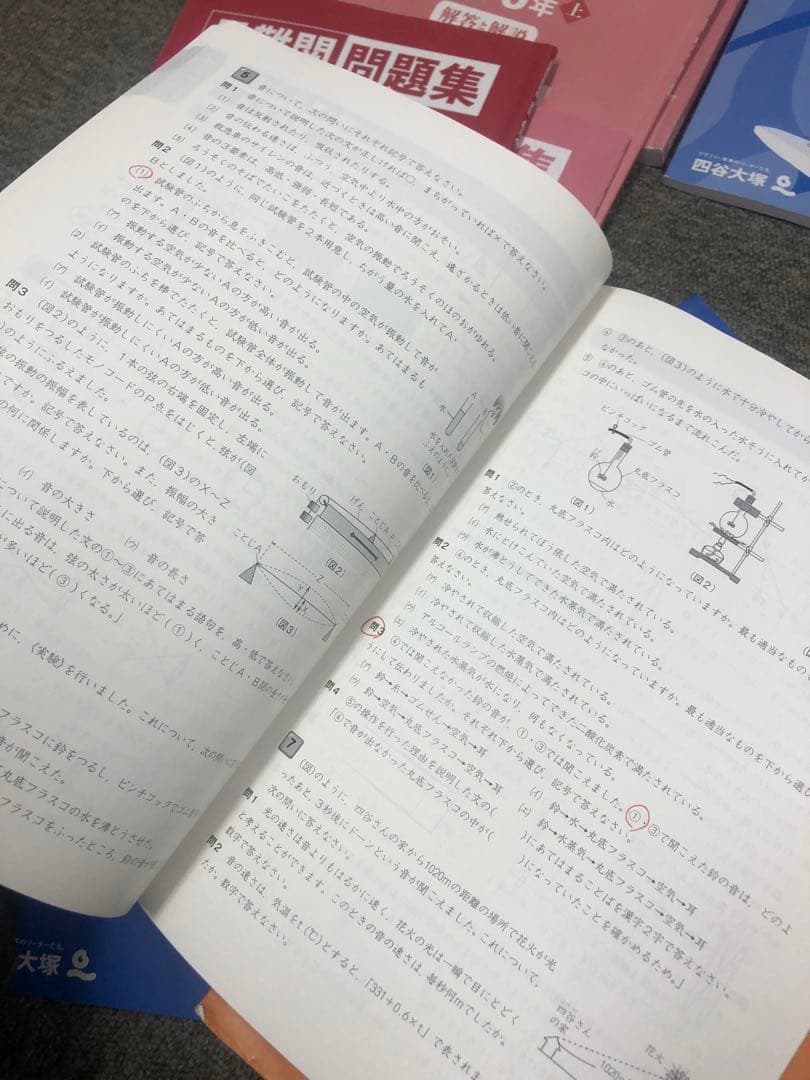 問題集
6年 上
解答と解説
集
四谷大塚
5 音について、次の問いにそれぞれ記号で答えなさい。
問1 音について説明した次の文が正しければ○、まちがっていれば×で答えなさい。
(1) 音は反射されたり、吸収されたりする。
(2) 音の伝わる速さは、ふつう、空気中より水中の方がおそい。
(3) 救急車のサイレンの音は、近づくときは高い音に聞こえ、遠ざかるときは低い音に聞こえる
(4) 音の3要素は、高低・強弱・長短である。
(5) ろうそくのそばでたいこをたたくと、空気の振動でろうそくのほのおがゆれる。
問2 (図1)のように、同じ試験管を2本用意し、ちがう量の水を入れてA・
Bとしました。
(1) 試験管のふちから息をふきこむと、試験管の中の空気が振動して音が
出ます。A・Bの音を比べると、どのようになりますか。あてはまるも
のを下から選び、記号で答えなさい。
(ア) 振動する空気が少ないAの方が高い音が出る。
(イ) 振動する空気が少ないAの方が低い音が出る。
(2) 試験管のふちを棒でたたくと、試験管全体が振動して音が出ます。A・Bの音を比べると
ようになりますか。あてはまるものを下から選び、記号で答えなさい。
(ア) 試験管が振動しにくいAの方が高い音が出る。
(イ) 試験管が振動しにくいAの方が低い音が出る。
問3 (図2)のように、1本の弦の右端を固定し、左端に
おもりをつるしたモノコードのP点をはじくと、弦が(図
)のようにふるえました。
弦の振動の振幅を表しているのは、(図3)のX~Z
ですか。記号で答えなさい。また、振幅の大き
の何に関係しますか。下から選び、記号で答
(イ) 音の大きさ
(ウ) 音の長さ
について説明した文の①~③にあてはまる語句を、高・低で答えなさい
に出る音は、弦の太さが太いほど(①)く、ことじA・B間の長さが
が多いほど(③)くなる。」
水
A
(図1)
おもり
げん
ことじA
P
(図2)
ことじA
Z
Y
X
(図3)
めに、〈実験〉を行いました。これについて、次の問いに
フラスコに鈴をつるし、ピンチコックでゴム管
音が聞こえた。
丸底フラスコの水を沸とうさせた
フラスコをふったところ、鈴の音が
④ ③のあと、(図3)のように水で十分冷やしてから
なかった。
⑤ ④のあと、ゴム管の先を水の入った水そうに入れてか
コの中にいっぱいになるまで流れこんだ。
ピンチコック
ゴム管
鈴
丸底フラスコ
水
(図1)
(図2)
問1 ②のとき、丸底フラスコ内はどのようになっていますか。最も適当なものを
答えなさい。
(ア) 熱せられてぼう張した空気で満たされている。
(イ) 水にとけこんでいた空気で満たされている。
(ウ) 水が沸とうしてできた水蒸気で満たされている。
問2 ④のとき、丸底フラスコ内はどのようになっていますか。最も適当なものを下から選び
答えなさい。
(ア) 冷やされて収縮した空気で満たされている。
(イ) 冷やされて収縮した水蒸気で満たされている。
(ウ) アルコールランプの燃焼によってできた二酸化炭素で満たされている。
(エ) 冷やされた水蒸気が水になり、何もなくなっている。
問3 ④では聞こえなかった鈴の音が、①、③では聞こえました。①、③で聞こえた鈴の音は、どのよ
うにして伝わりましたか。それぞれ下から選び、記号で答えなさい。
(ア) 鈴→糸→ゴムせん→空気→耳
(イ) 鈴→水→丸底フラスコ→空気→耳
(ウ) 鈴→空気→丸底フラスコ→空気→耳
(エ) 鈴→水蒸気→丸底フラスコ→空気→耳
問4 ⑤の操作を行った理由を説明した文の( )にあてはまることばを漢字2字で答えなさい。
「④で音が出なかった丸底フラスコの中が( )になっていたことを確かめるため。」
7 (図)のように、四谷さんの家から1020mの距離の場所で花火が光
ったあと、3秒後にドーンという音が聞こえました。これについて、
次の問いに答えなさい。
問1 光の速さは音よりもはるかに速く、花火の光は一瞬で目にとどく
と考えることができます。このときの音の速さは、毎秒何mでしたか。
数字で答えなさい。
問2 音の速さは、気温をt(℃)とすると、「331+0.6×t」で表されま
たか。数字で答えなさい。
四谷さん
の家
花火
1020m
大塚